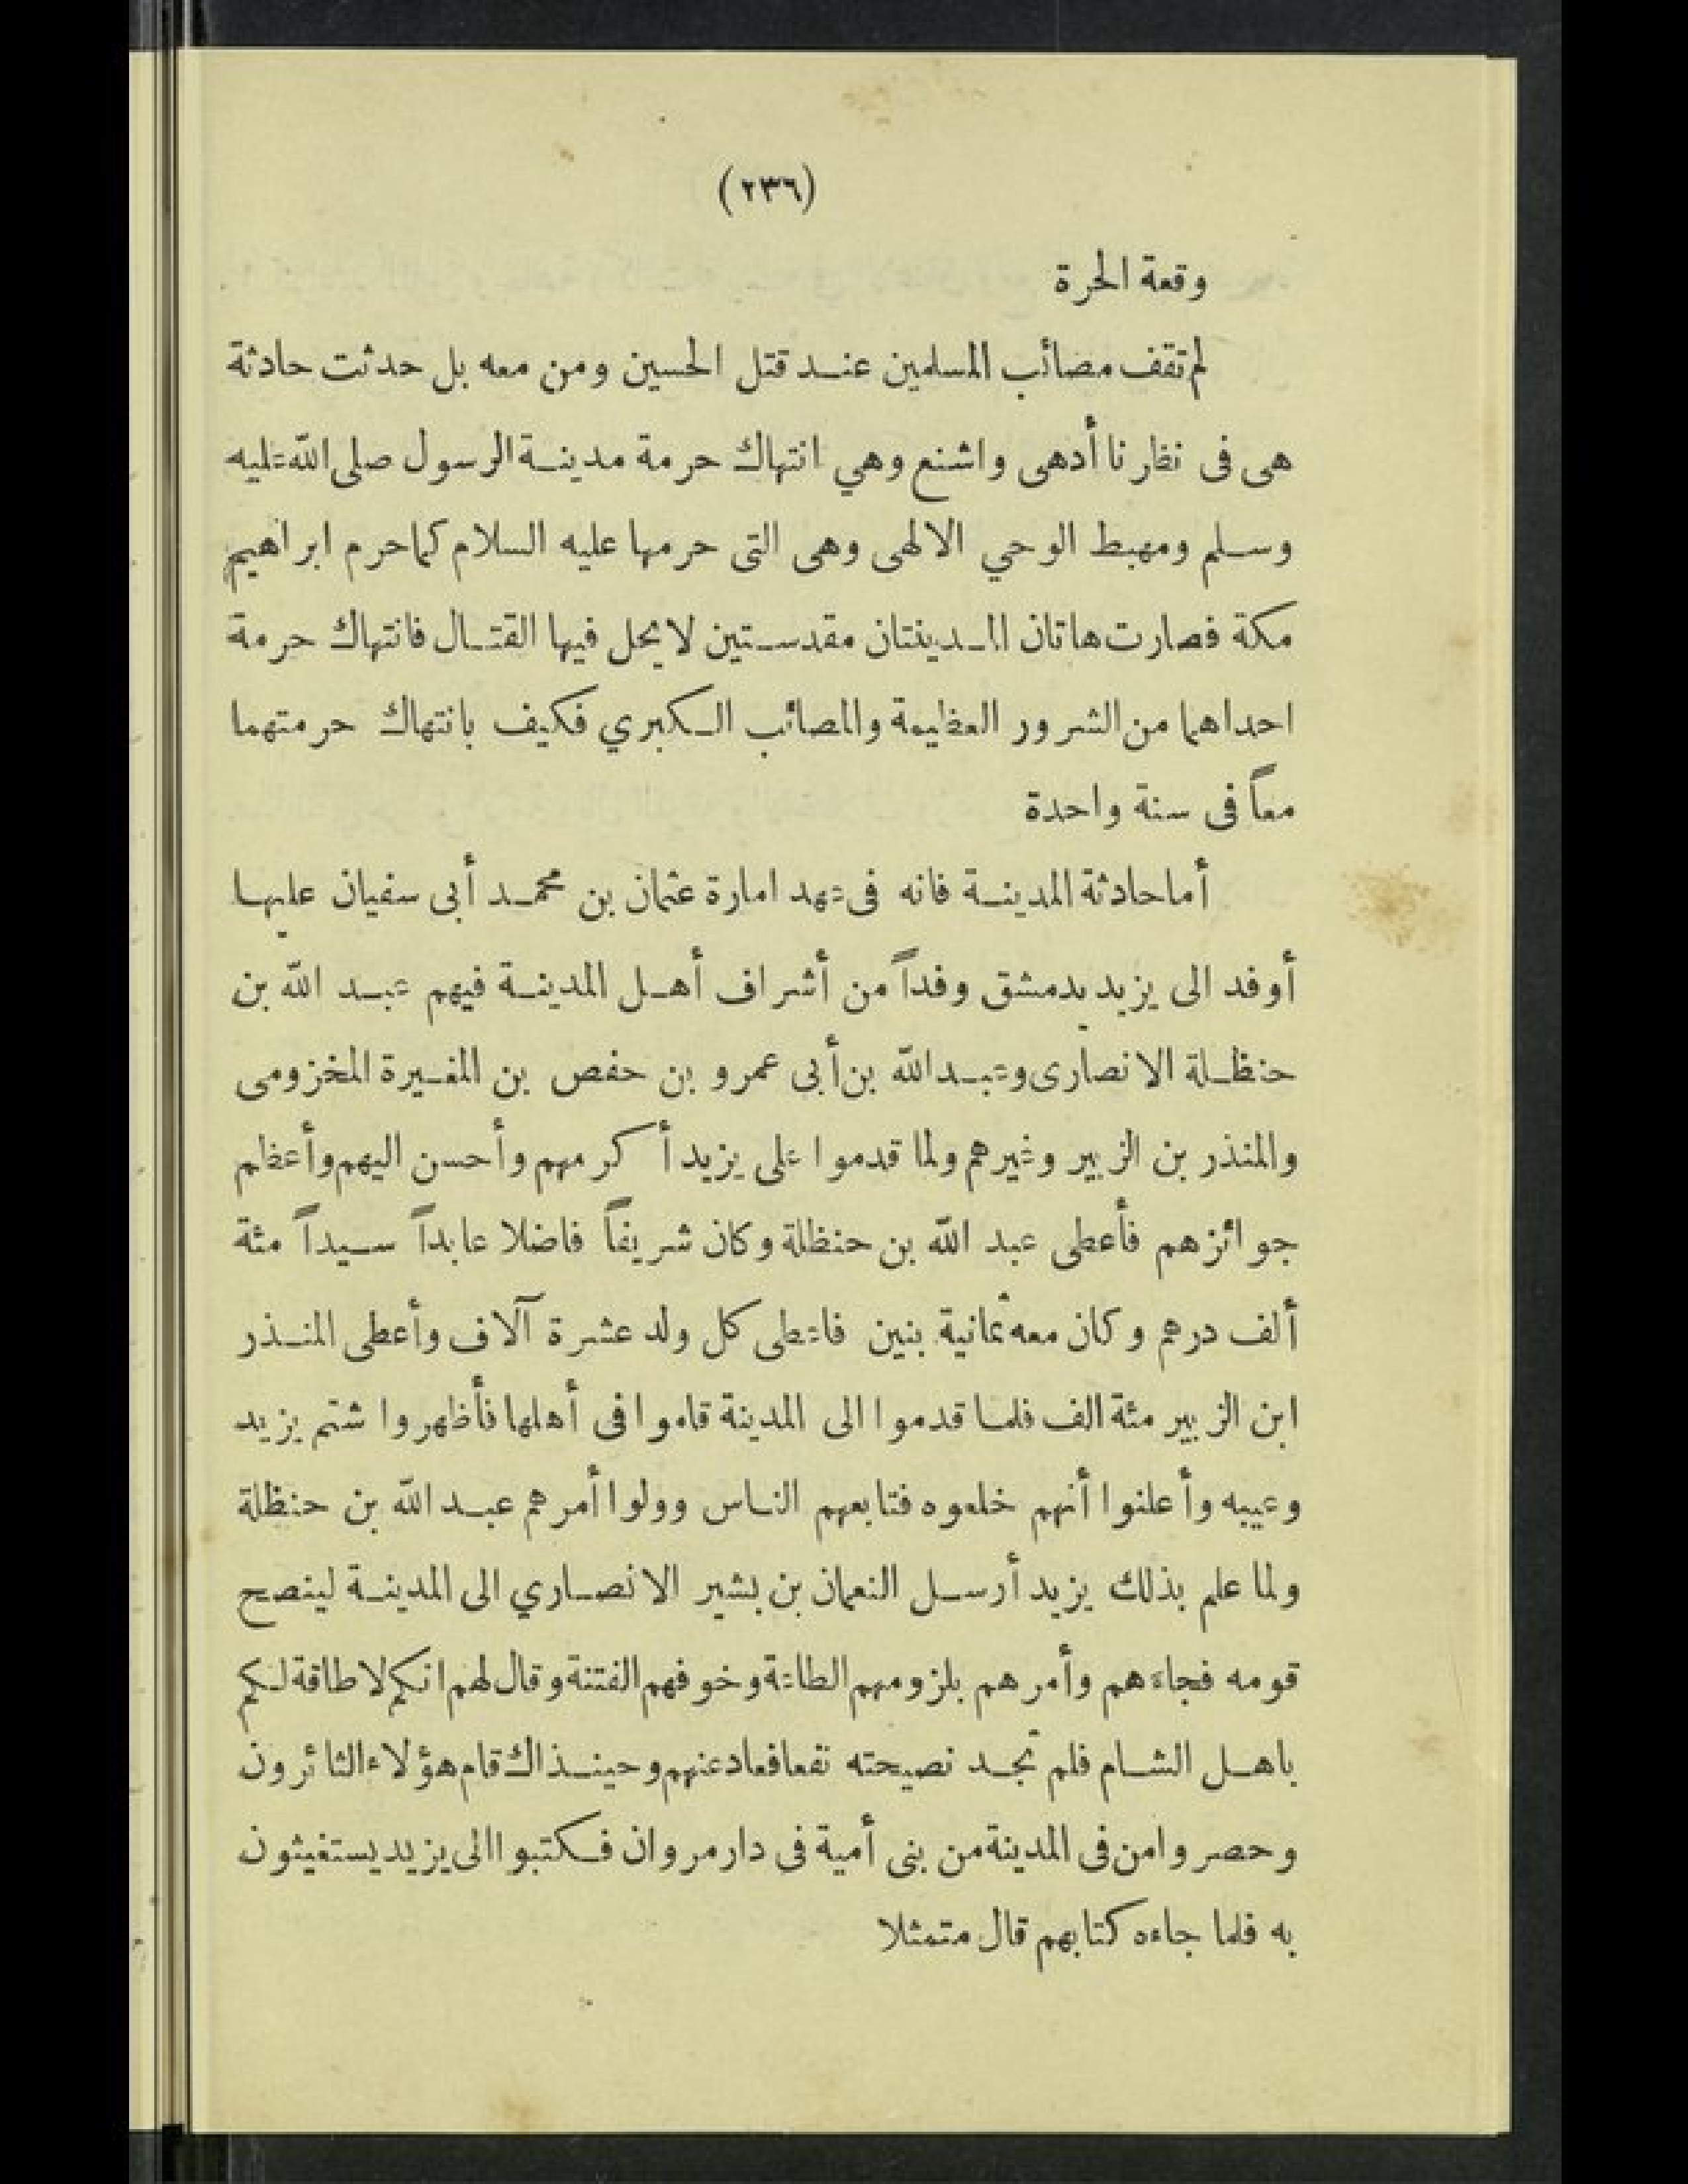 (٢٣٦)
وقعة الحرة
لم تقف مصائب المسلمين عند قتل الحسين ومن معه بل حدثت حادثة
هى فى نظرنا أدهى واشنع وهي انتهاك حرمة مدينة الرسول صلى الله عليه
وسلم ومهبط الوحي الالهى وهى التى حرمها عليه السلام كما حرم ابراهيم
مكة فصارت هاتان المدينتان مقدستين لا يحل فيها القتال فانتهاك حرمة
احداهما من الشرور العظيمة والمصائب الكبري فكيف بانتهاك حرمتهما
معاً فى سنة واحدة
أما حادثة المدينة فانه فى عهد امارة عثمان بن محمد أبى سفيان عليها
أوفد الى يزيد بدمشق وفداً من أشراف أهل المدينة فيهم عبد الله بن
حنظلة الانصارى وعبد الله بن أبى عمرو بن حفص بن المغيرة المخزومى
والمنذر بن الزبير وغيرهم ولما قدموا على يزيد أكرمهم وأحسن اليهم وأعظم
جوائزهم فأعطى عبد الله بن حنظلة وكان شريفاً فاضلا عابداً سيداً مئة
ألف درهم وكان معه ثمانية بنين فاعطى كل ولد عشرة آلاف وأعطى المنذر
ابن الزبير مئة الف فلما قدموا الى المدينة قاموا فى أهلها فأظهروا شتم يزيد
وعيبه وأعلنوا أنهم خلعوه فتابعهم الناس وولوا أمرهم عبد الله بن حنظلة
ولما علم بذلك يزيد أرسل النعمان بن بشير الانصاري الى المدينة لينصح
قومه فجاءهم وأمرهم بلزومهم الطاعة وخوفهم الفتنة وقال لهم انكم لا طاقة لكم
باهل الشام فلم تجد نصيحته نفعا فعاد عنهم وحينذاك قام هؤلاء الثائرون
وحصروا من فى المدينة من بنى أمية فى دار مروان فكتبوا الى يزيد يستغيثون
به فلما جاءه كتابهم قال متمثلا